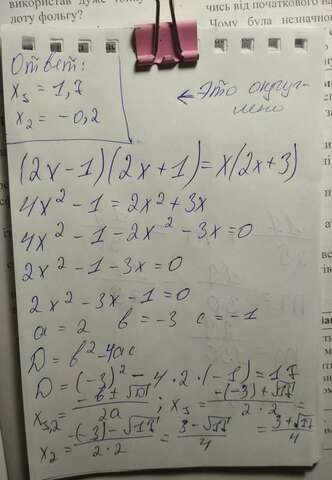 використав дуже
лоту фольгу?
чись від початкового на
Чому була незначно
Ответ:
x₁ = 1,7
x₂ = -0,2
← Это округ-
лено
(2x-1)(2x+1)=x(2x+3)
4x² - 1 = 2x² + 3x
4x² - 1 - 2x² - 3x = 0
2x² - 1 - 3x = 0
2x² - 3x - 1 = 0
a = 2 b = -3 c = -1
D = b² - 4ac
D = (-3)² - 4 · 2 · (-1) = 17
x₁,₂ = -b ± √D / 2a ; x₁ = -(-3) + √17 / 2 · 2 = 3 + √17 / 4
x₂ = -(-3) - √17 / 2 · 2 = 3 - √17 / 4